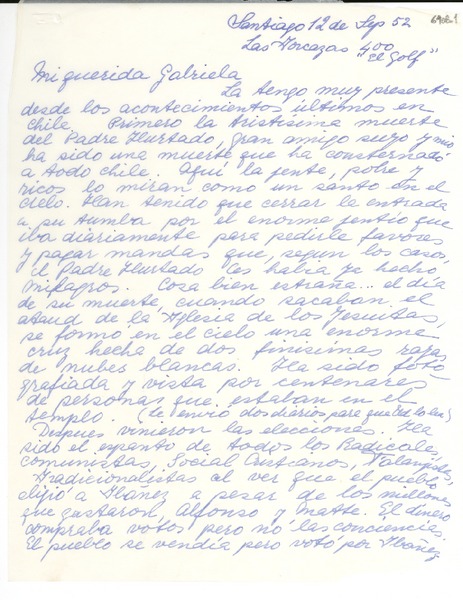 Santiago 12 de Sep 52
Las Torcazas 400
"El Golf"
Mi querida Gabriela
La tengo muy presente
desde los acontecimientos ultimos en
Chile. Primero la tristisima muerte
del Padre Hurtado, gran amigo suyo y mio
ha sido una muerte que ha consternado
a todo chile. Aqui la jente, pobre y
ricos lo miran como un santo en el
cielo. Han tenido que cerrar la entrada
a su tumba por el enorme jentio que
iba diariamente para pedirle favores
y pagar mandas que, segun los casos,
el Padre Hurtado les habia ya hecho
milagros. Cosa bien estraña... el dia
de su muerte, cuando sacaban el
ataud de la Iglesia de los Jesuitas,
se formo en el cielo una enorme
cruz hecha de dos finisimas rayas
de nubes blancas. Ha sido foto
grafiada y vista por centenares
de personas que estaban en el
templo. (le envio dos diarios para que Ud los lea)
Despues vinieron las elecciones. Ha
sido el espanto de todos los Radicales,
comunistas, Social Cristianos, Falangistas,
Tradicionalistas al ver que el pueblo
elijió a Ibanez a pesar de los millones
que gustaron Alfonso y Matte. El dinero
compraba votos pero no las conciencias.
El pueblo se vendia pero votó por Ibáñez